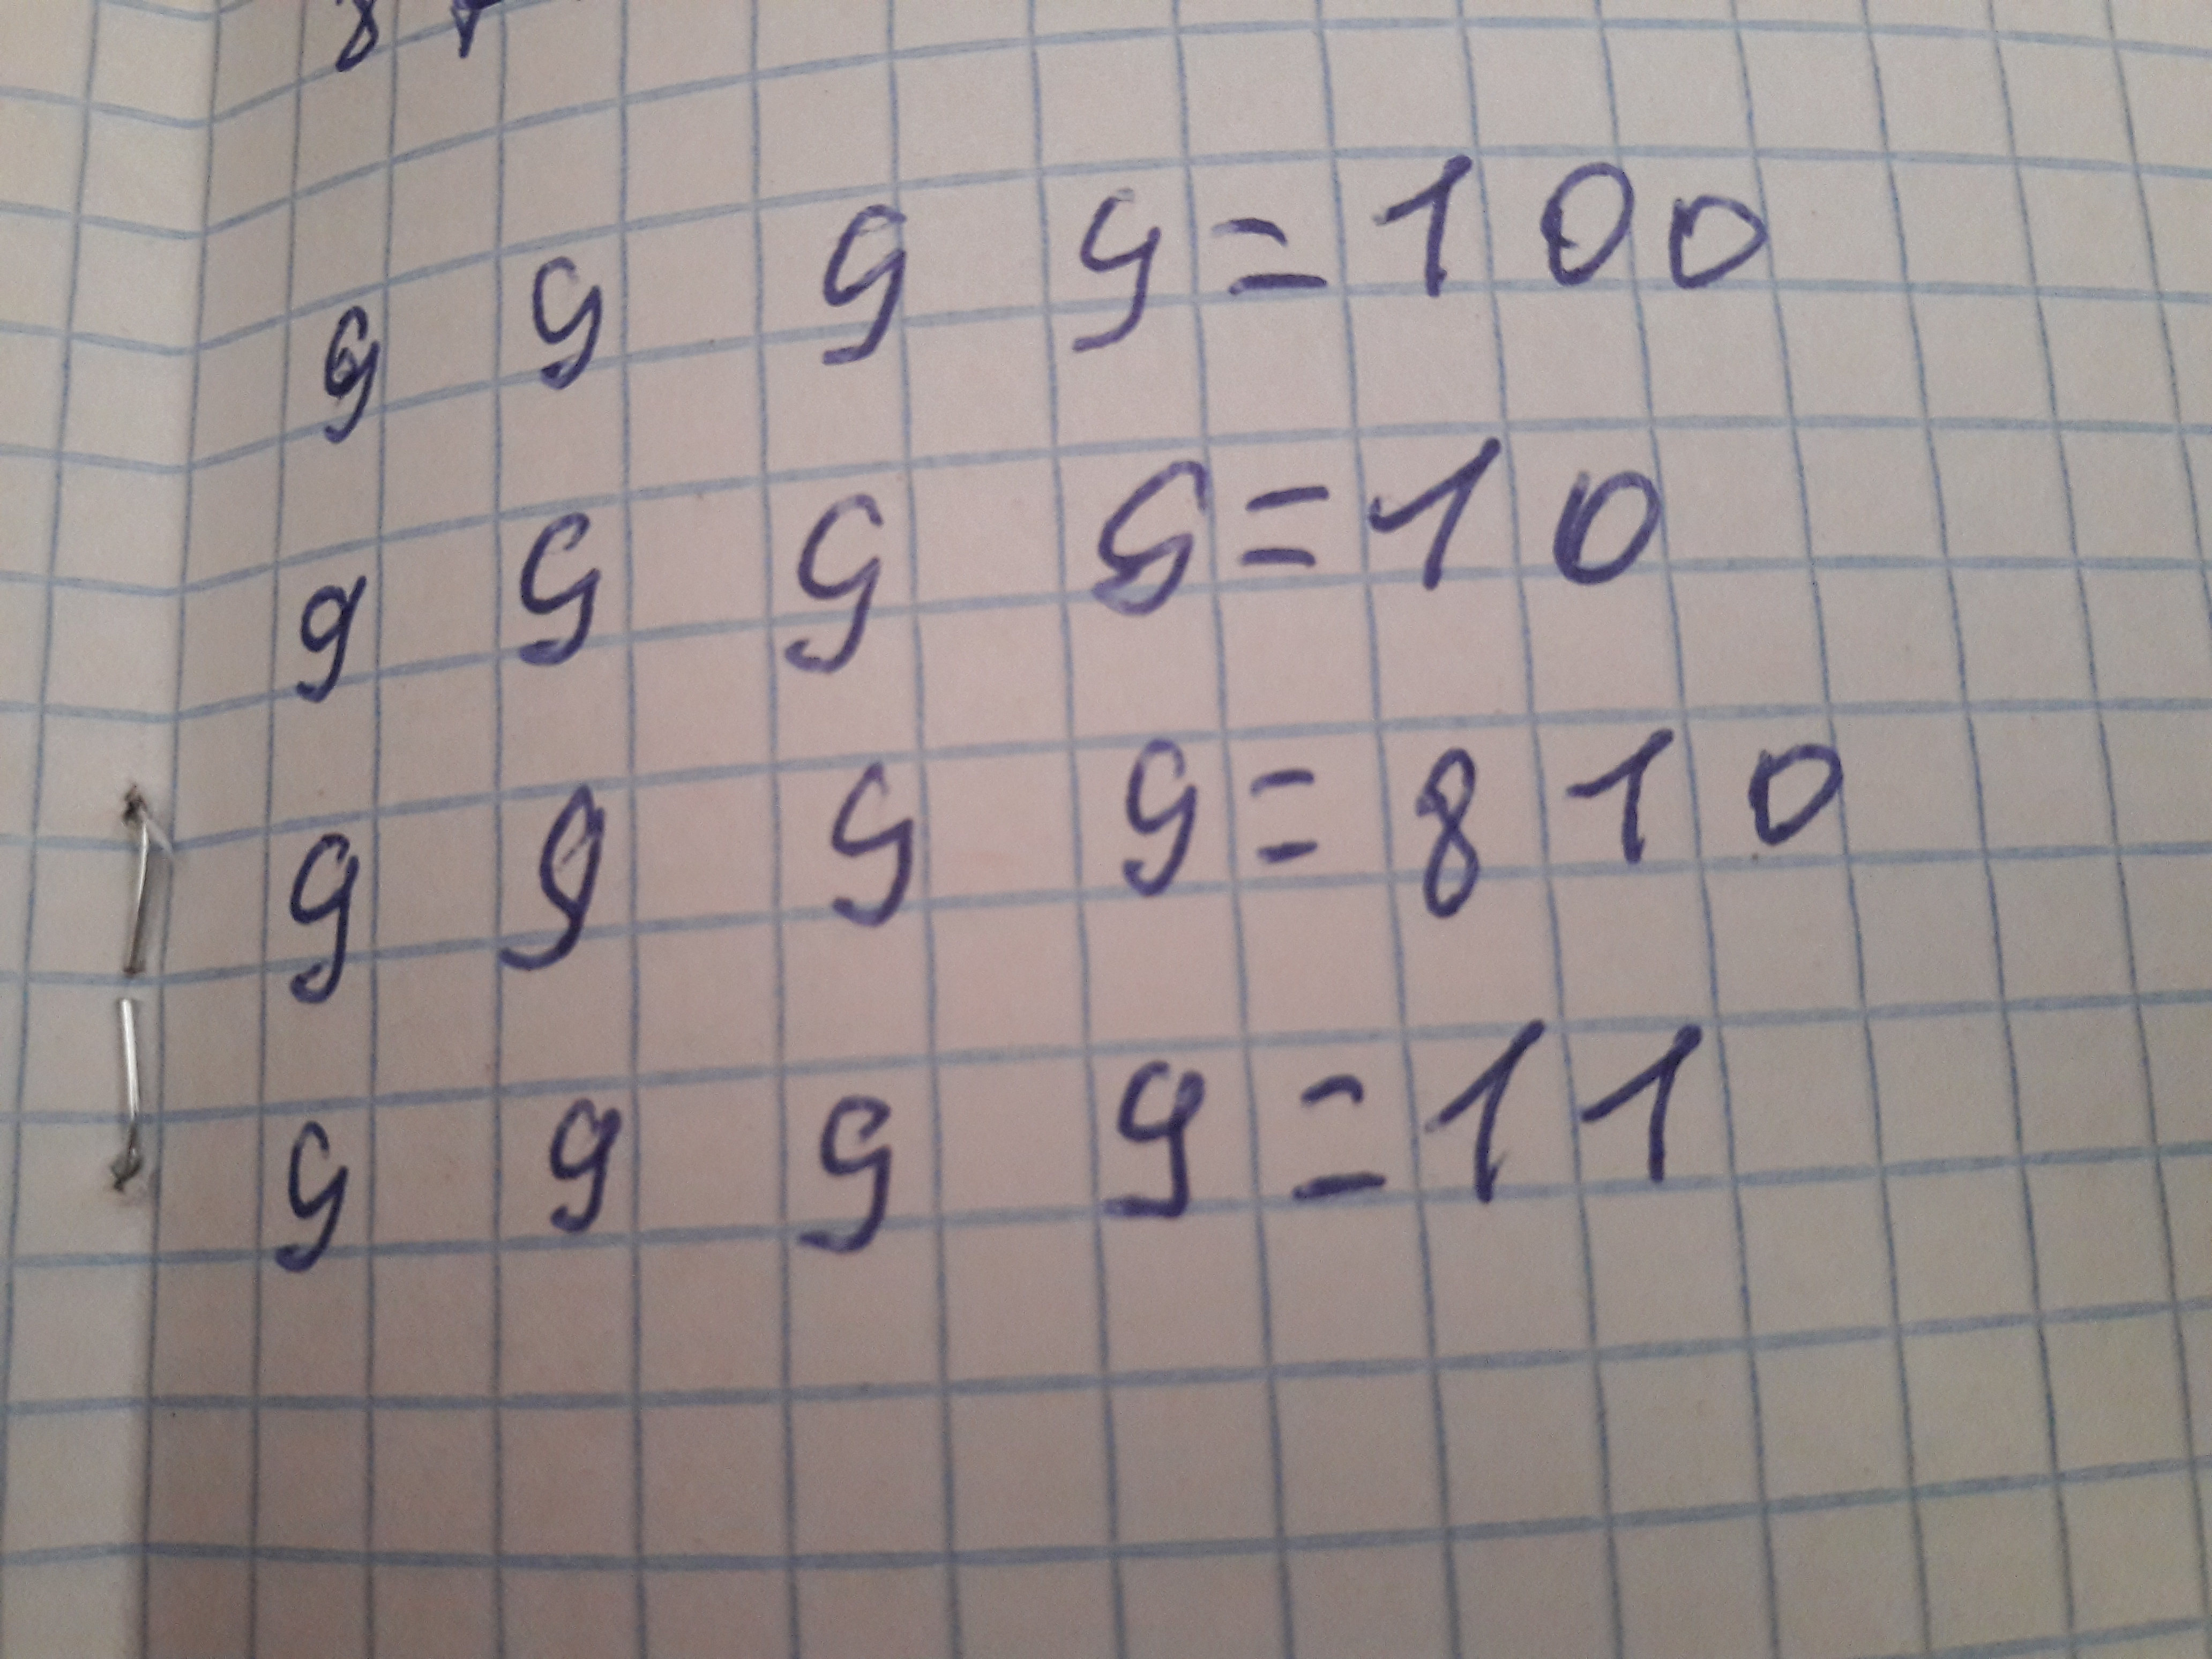 9 9 9 9 = 100
9 9 9 9 = 10
9 9 9 9 = 810
9 9 9 9 = 11